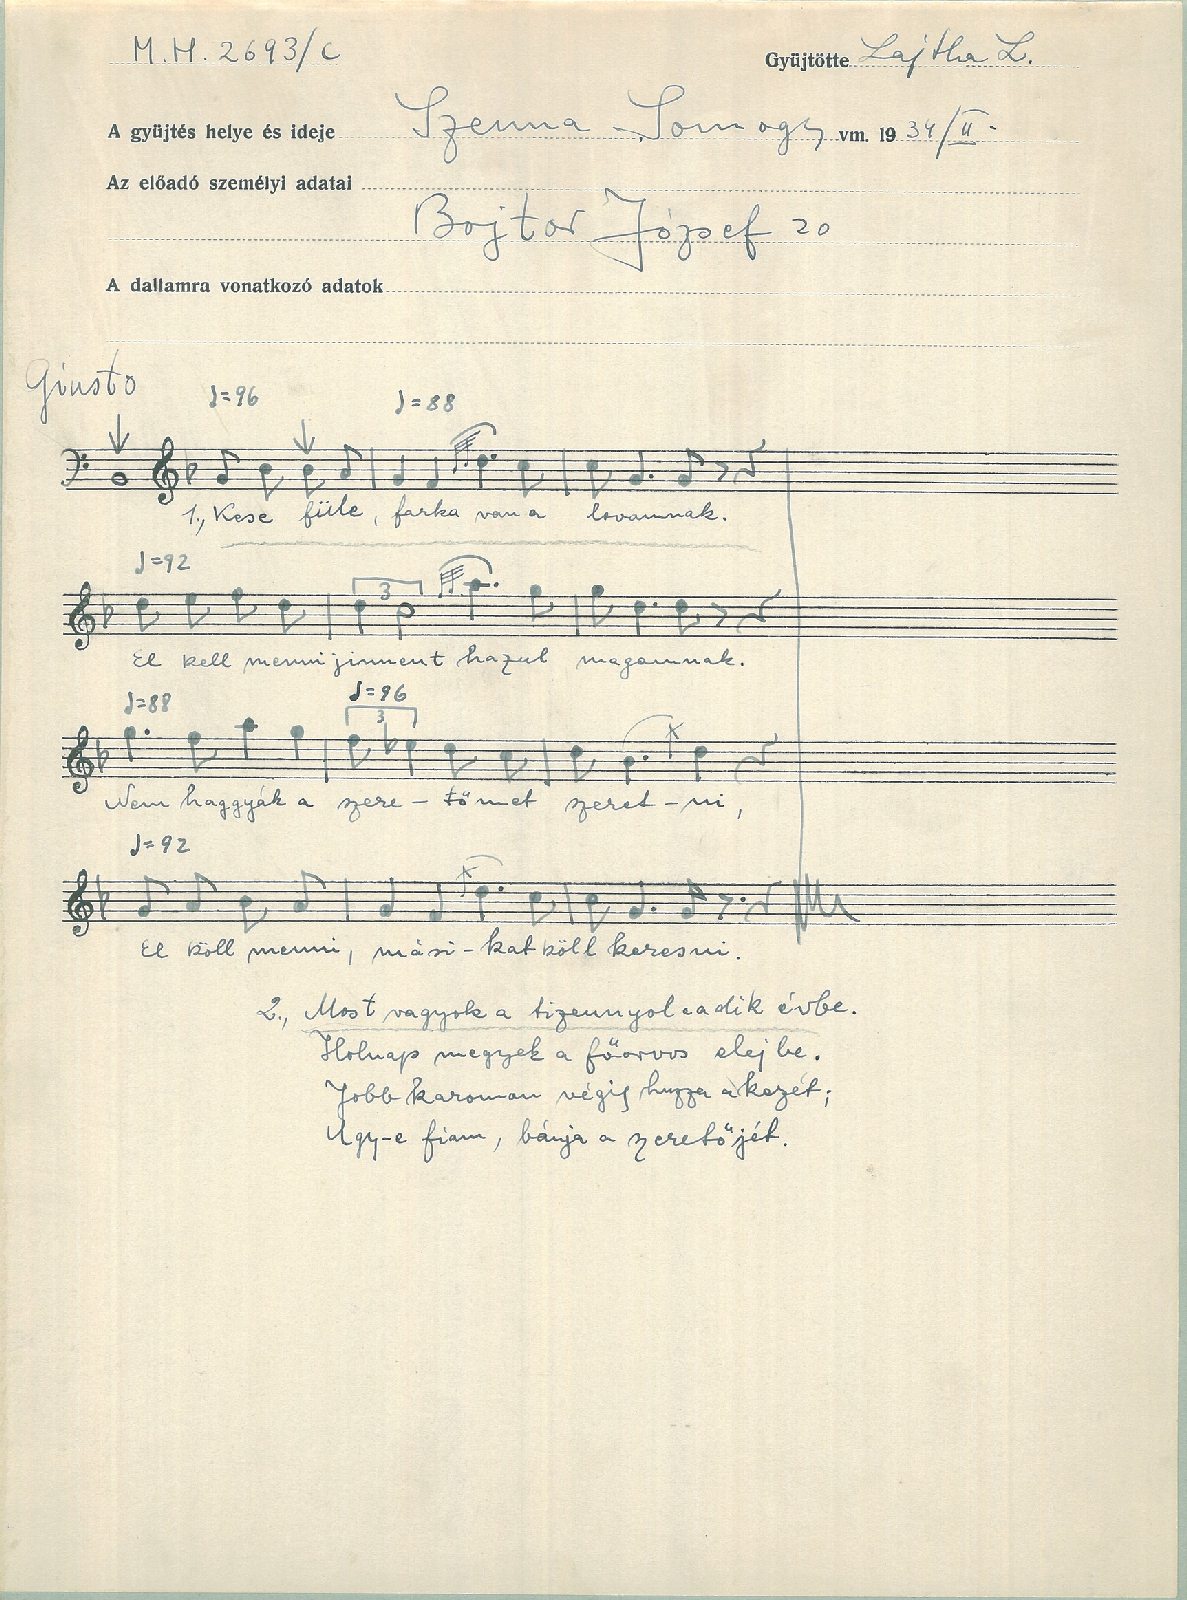 M.H. 2693/c
Gyűjtötte Lajtha L.
A gyűjtés helye és ideje Szenna - Somogy vm. 1934/II.
Az előadó személyi adatai
Bojtor József 20
A dallamra vonatkozó adatok
Giusto
♩=96 ♩=88
1., Kese füle, farka van a lovamnak.
♩=92
3
El kell menni jinnent hazul magamnak.
♩=88 ♩=96
3
Nem haggyák a szere - tőmet szeret - ni,
♩=92
El köll menni, mási - kat köll keresni.
2., Most vagyok a tizennyolcadik évbe.
Holnap megyek a főorvos elejbe.
Jobb karomon végig huzza a kezét;
Ugy-e fiam, bánja a szeretőjét.